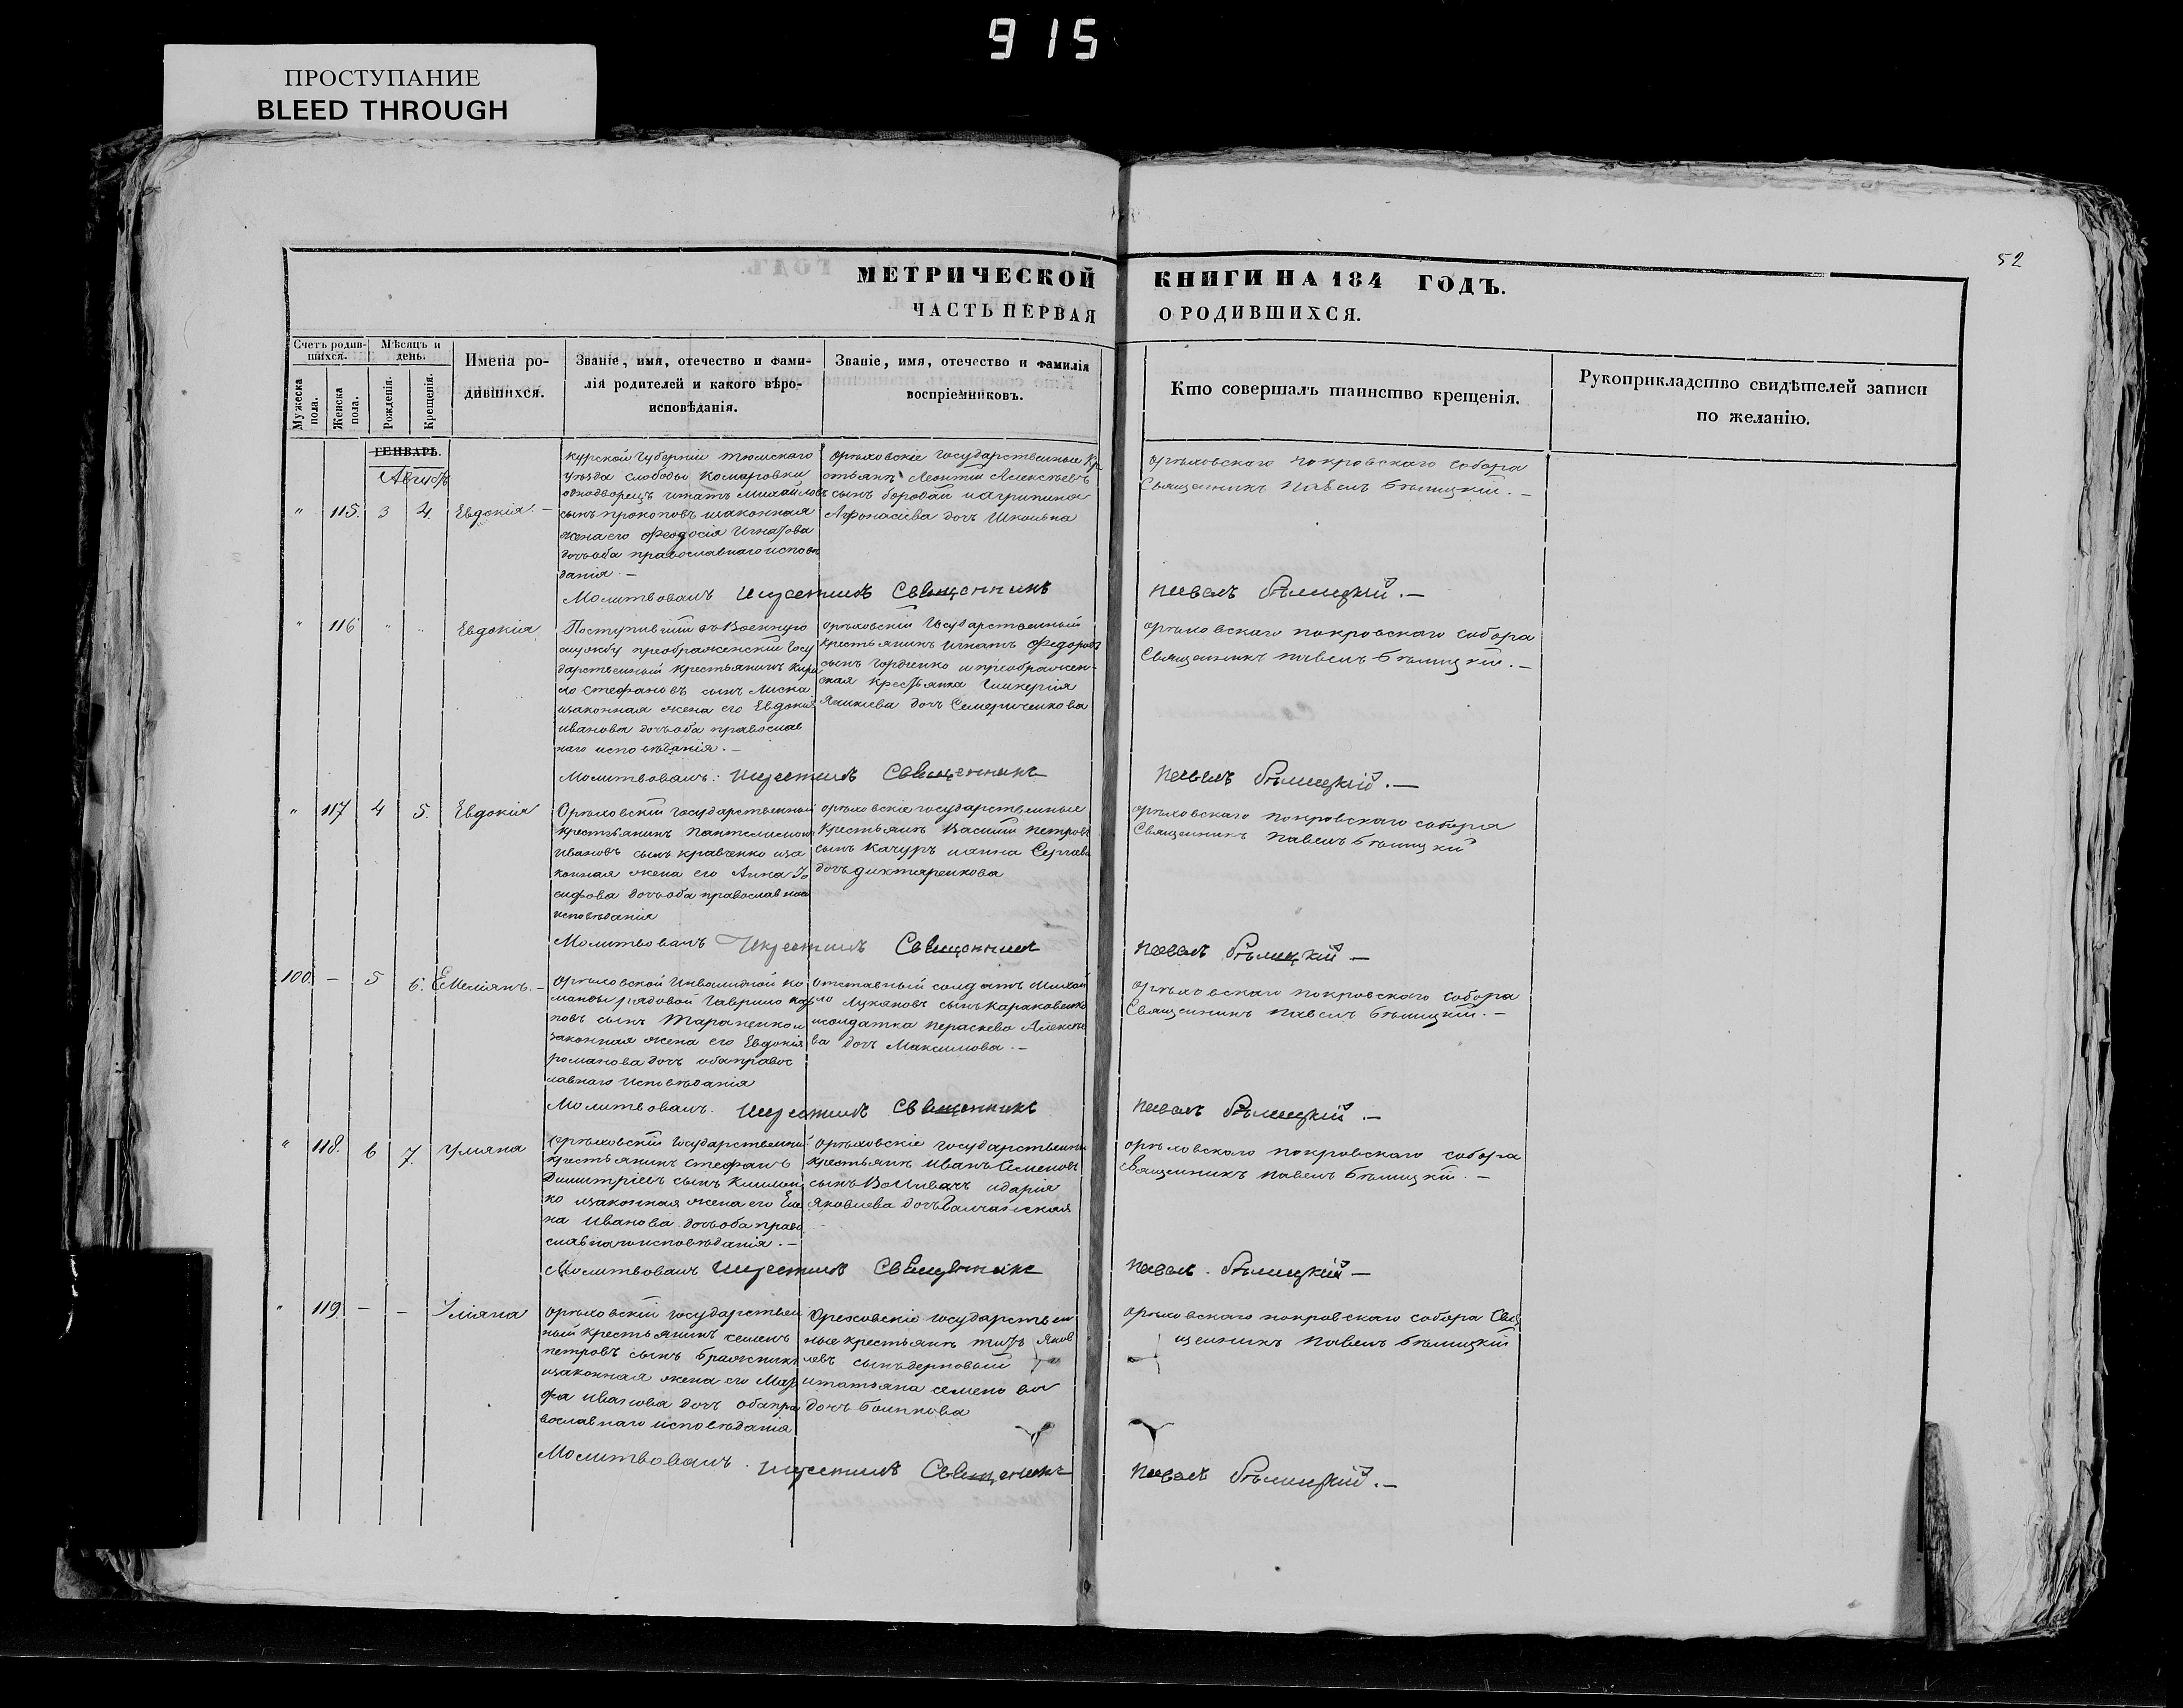 915
ПРОСТУПАНИЕ
BLEED THROUGH
52
МЕТРИЧЕСКОЙ КНИГИ НА 184 ГОДЪ.
ЧАСТЬ ПЕРВАЯ О РОДИВШИХСЯ.
Счетъ родив-
шихся.
Мужеска пола.
Женска пола.
Мѣсяцъ и
день.
Рожденія.
Крещенія.
Имена ро-
дившихся.
Званіе, имя, отечество и фами-
лія родителей и какого вѣро-
исповѣданія.
Званіе, имя, отечество и фамилія
воспріемниковъ.
Кто совершалъ таинство крещенія.
Рукоприкладство свидѣтелей записи
по желанію.
ГЕНВАРЬ.
Августъ
" 115. 3 4. Евдокія. —
Курской губерніи
уѣзда слободы Комаровки
однодворецъ Игнатъ Михайловъ
сынъ Прокоповъ изаконная
жена его Феодосія Игнатова
дочь оба православнаго исповѣ
данія —
Орѣховскіе государственные Кр
стьянѣ Леонтій Алексѣевъ
сынъ Бородай и Агрипина
Афонасіева дочь Школьна
Орѣховскаго Покровскаго собора
Священникъ Павелъ Бѣлицкій. —
Молитвовалъ икрестилъ Священникъ Павелъ Бѣлицкій. —
" 116 " " Евдокія
Поступившій въ Военную
службу преображенскій Госу
дарственный крестьянинъ Кири
ло Стефановъ сынъ Лиска
изаконная жена его Евдокія
Иванова дочь оба православ
наго исповѣданія. —
Орѣховскій Государственный
крестьянинъ Игнатъ Федоровъ
сынъ Гордіенко и преображен-
ская крестьянка Гликерія
дочь Семериченкова
Орѣховскаго Покровскаго собора
Священникъ Павелъ Бѣлицкій. —
Молитвовалъ: икрестилъ Священникъ Павелъ Бѣлицкій. —
" 117 4 5. Евдокія
Орѣховскій государственный
крестьянинъ Пантелеимонъ
Ивановъ сынъ Кравченко иза
конная жена его Анна Іо
сифова дочь оба православнаго
исповѣданія
Орѣховскіе государственные
крестьянѣ Василій Петровъ
сынъ Качуръ ианна Сергѣева
дочь Дихтяренкова
Орѣховскаго Покровскаго собора
Священникъ Павелъ Бѣлицкій
Молитвовалъ Икрестилъ Священникъ Павелъ Бѣлицкій —
100. — 5 6. Емеліянъ. —
Орѣховской Инвалидной ко
манды рядовой Гаврило
повъ сынъ Тараненко и
законная жена его Евдокія
Романова дочь оба правос
лавнаго исповѣданія
Отставный солдатъ Михай
ло Лукяновъ сынъ Караковенко
исолдатка Пераскева Алексѣе
ва дочь Максимова. —
Орѣховскаго Покровскаго собора
Священникъ Павелъ Бѣлицкій. —
Молитвовалъ. икрестилъ Священникъ Павелъ Бѣлицкій. —
" 118. 6 7. Уліяна
Орѣховскій государственный
крестьянинъ Стефанъ
Димитріевъ сынъ Климен
ко изаконная жена его Еле
на Иванова дочь оба право
славнаго исповѣданія. —
Орѣховскіе государственные
крестьянѣ Иванъ Семеновъ
сынъ идарія
Яковлева дочь
Орѣховскаго Покровскаго собора
Священникъ Павелъ Бѣлицкій. —
Молитвовалъ икрестилъ Священникъ Павелъ. Бѣлицкій —
" 119. — — Уліяна
Орѣховскій государствен
ный крестьянинъ Семенъ
Петровъ сынъ Бражникъ
изаконная жена его Мар
фа Иванова дочь оба пра
вославнаго исповѣданія
Ореховскіе государствен
ные крестьянѣ Титъ Яков
левъ сынъ Дерновый
итатьяна Семено ва
дочь
Орѣховскаго Покровскаго собора Свя
щенникъ Павелъ Бѣлицкій
Молитвовалъ. икрестилъ Священникъ Павелъ Бѣлицкій. —